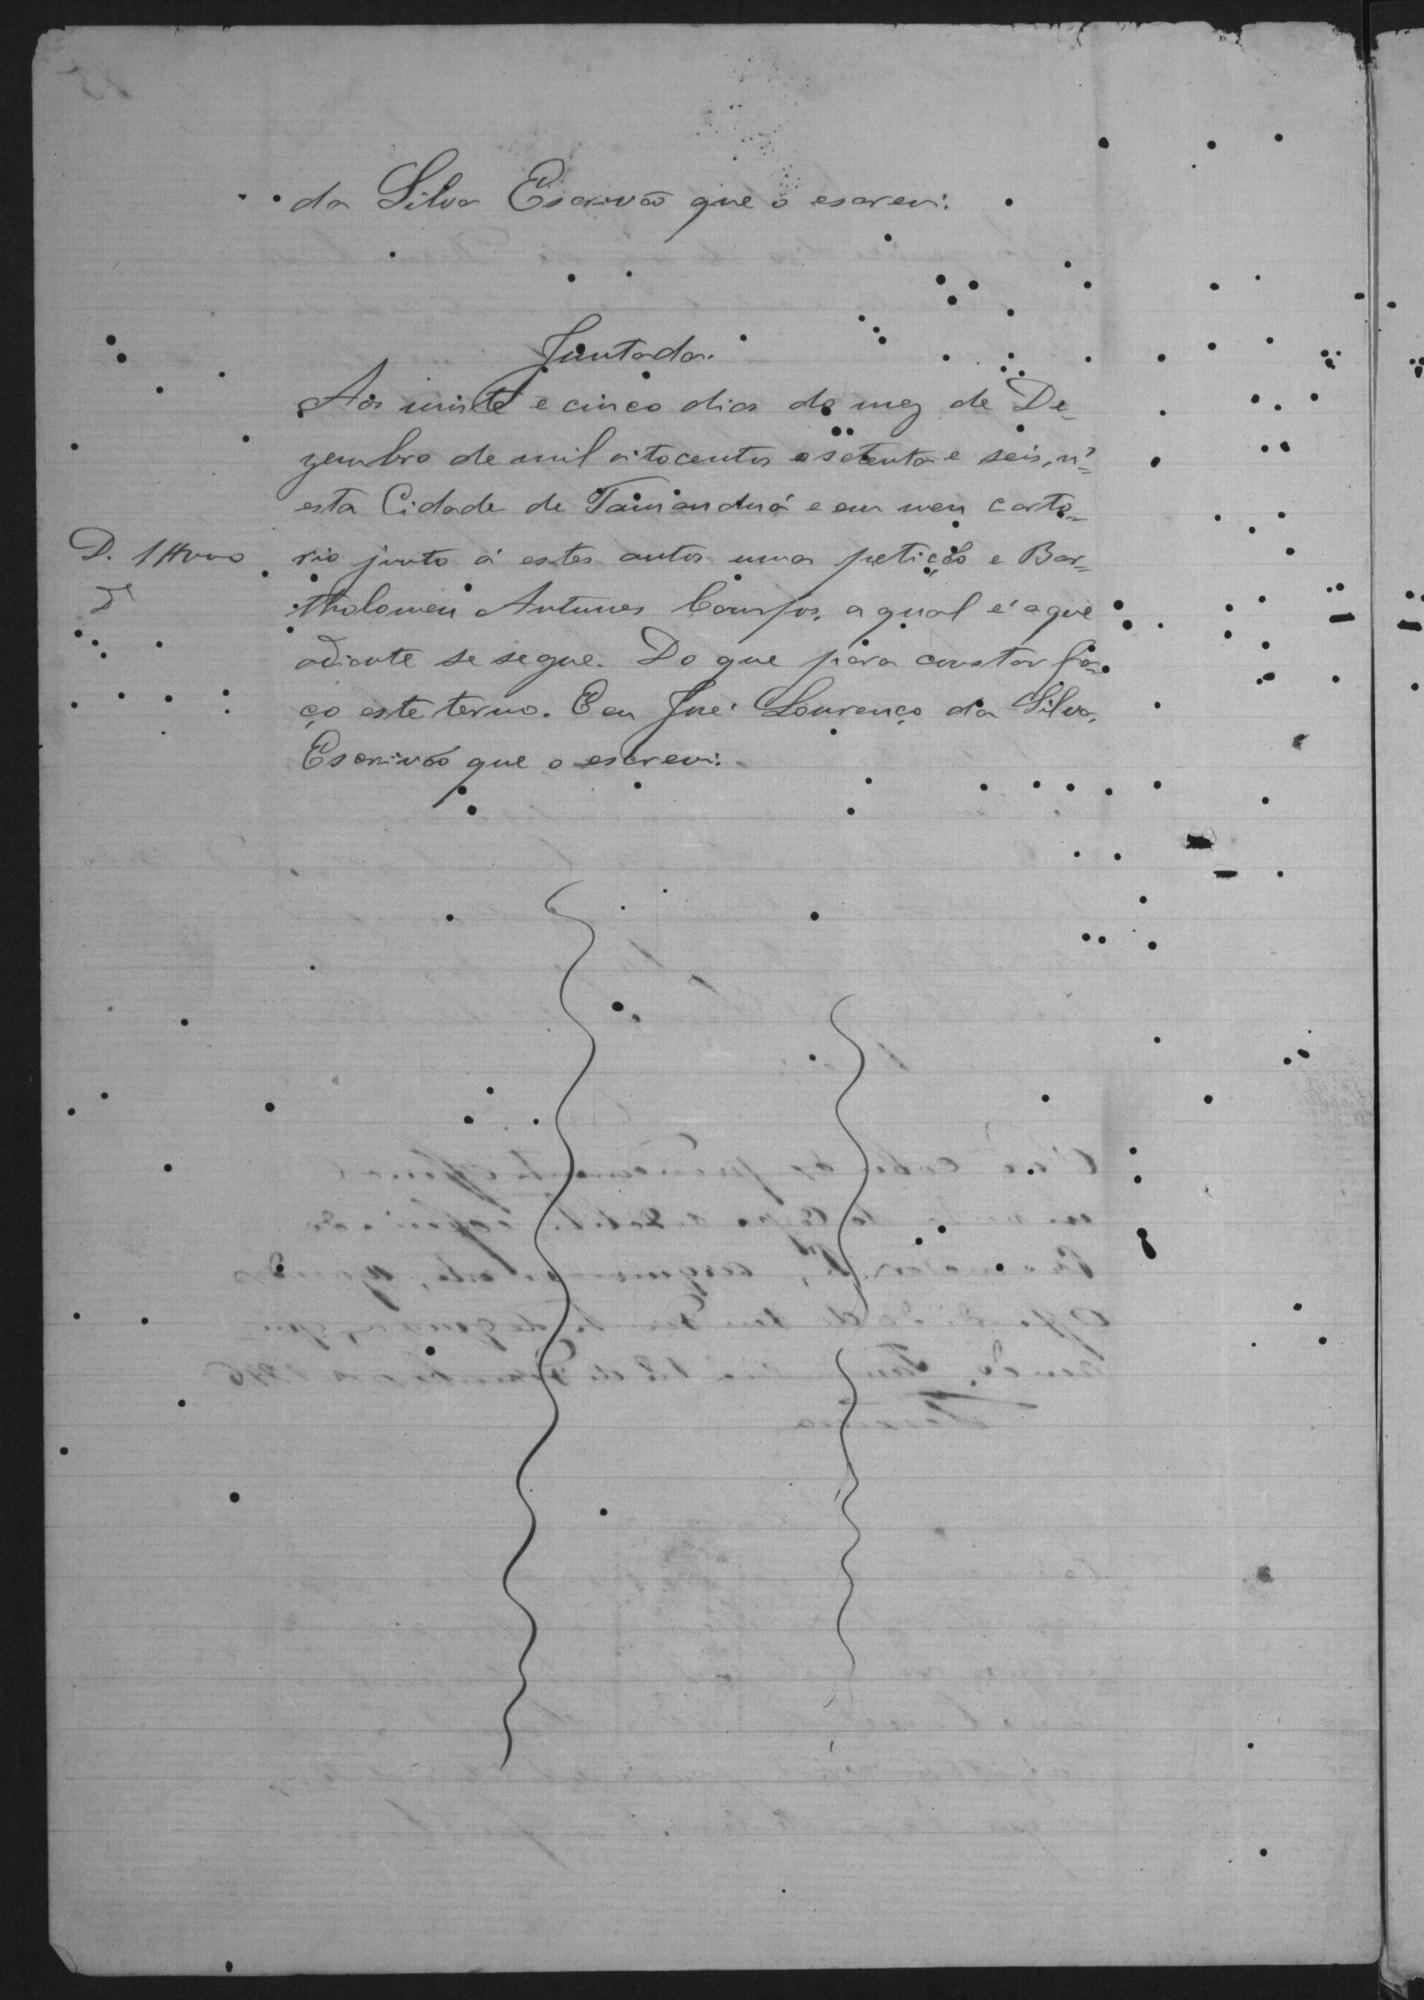 da Silva Escrivão que o escrevi.
Juntada.
Aos vinte e cinco dias do mez de De=
zembro de mil oitocentos e setenta e seis, n'=
esta Cidade de Tamanduá e em meu carto=
rio junto á estes autos uma petição e Bar=
tholomeu Antunes Campos, a qual é a que
adiante se segue. Do que para constar fa=
ço este termo. Eu José Lourenço da Silva,
Escrivão que o escrevi.
D.